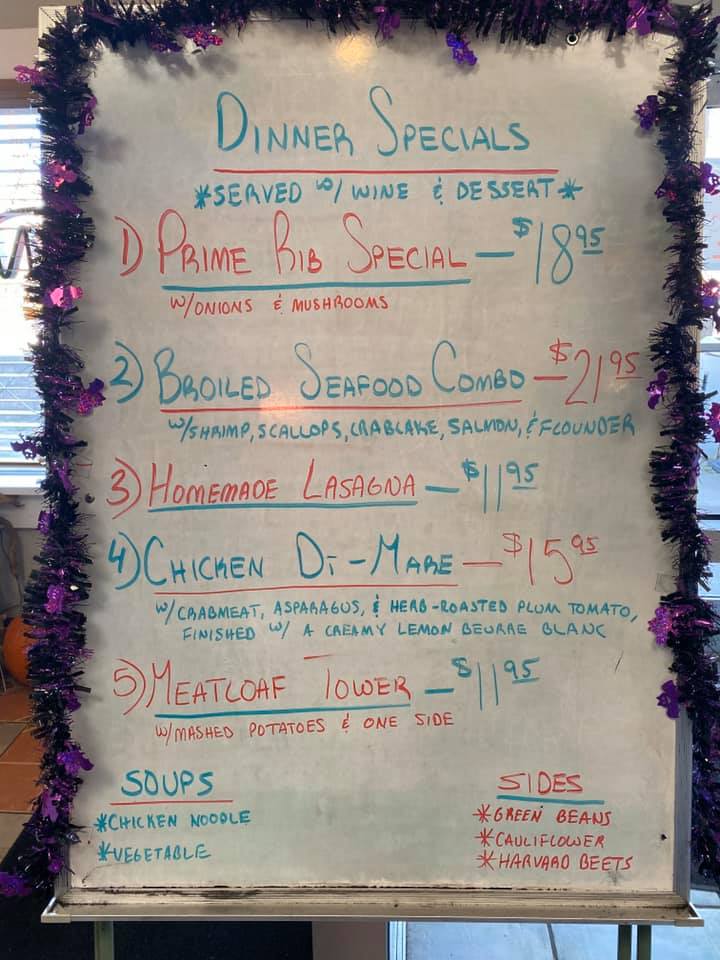 DINNER SPECIALS
*SERVED W/ WINE & DESSERT*
1) PRIME RIB SPECIAL - $18.95
W/ONIONS & MUSHROOMS
2) BROILED SEAFOOD COMBO - $21.95
W/SHRIMP, SCALLOPS, CRABCAKE, SALMON, & FLOUNDER
3) HOMEMADE LASAGNA - $11.95
4) CHICKEN DI-MARE - $15.95
W/CRABMEAT, ASPARAGUS, & HERB-ROASTED PLUM TOMATO,
FINISHED W/ A CREAMY LEMON BEURRE BLANC
5) MEATLOAF TOWER - $11.95
W/MASHED POTATOES & ONE SIDE
SOUPS
*CHICKEN NOODLE
*VEGETABLE
SIDES
*GREEN BEANS
*CAULIFLOWER
*HARVARD BEETS